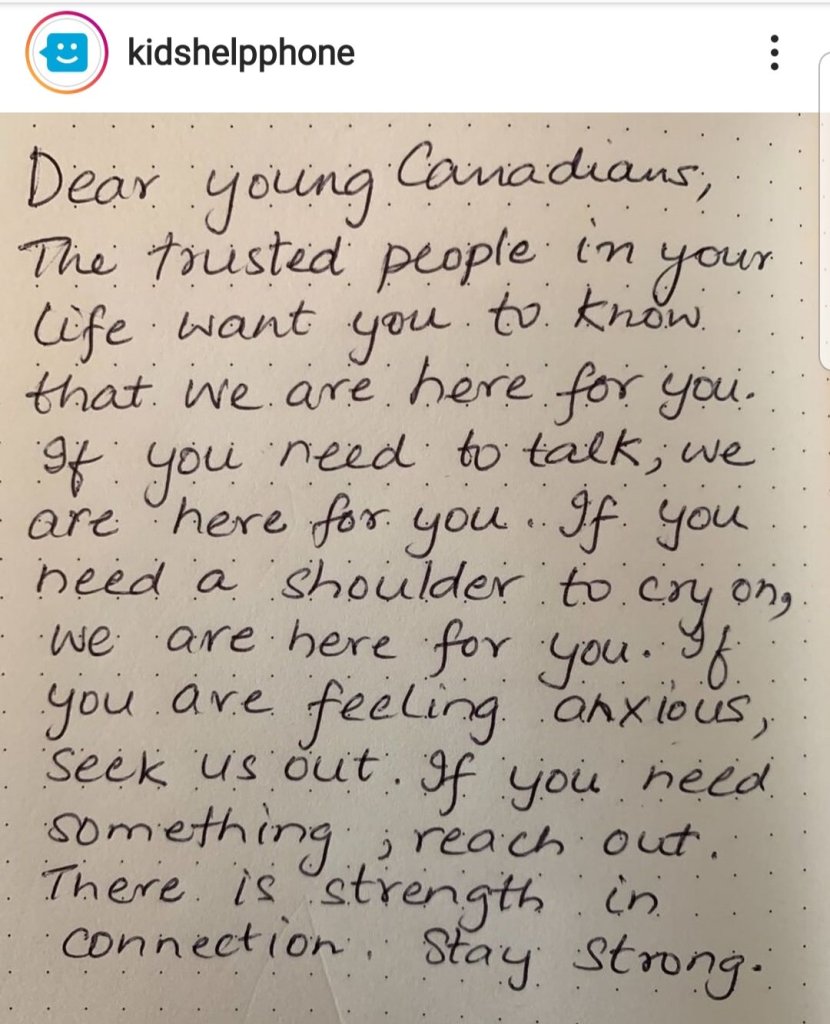 kidshelpphone
Dear young Canadians,
The trusted people in your
life want you to know
that we are here for you.
If you need to talk, we
are here for you. If you
need a shoulder to cry on,
we are here for you. If
you are feeling anxious,
seek us out. If you need
something, reach out.
There is strength in
connection. Stay strong.